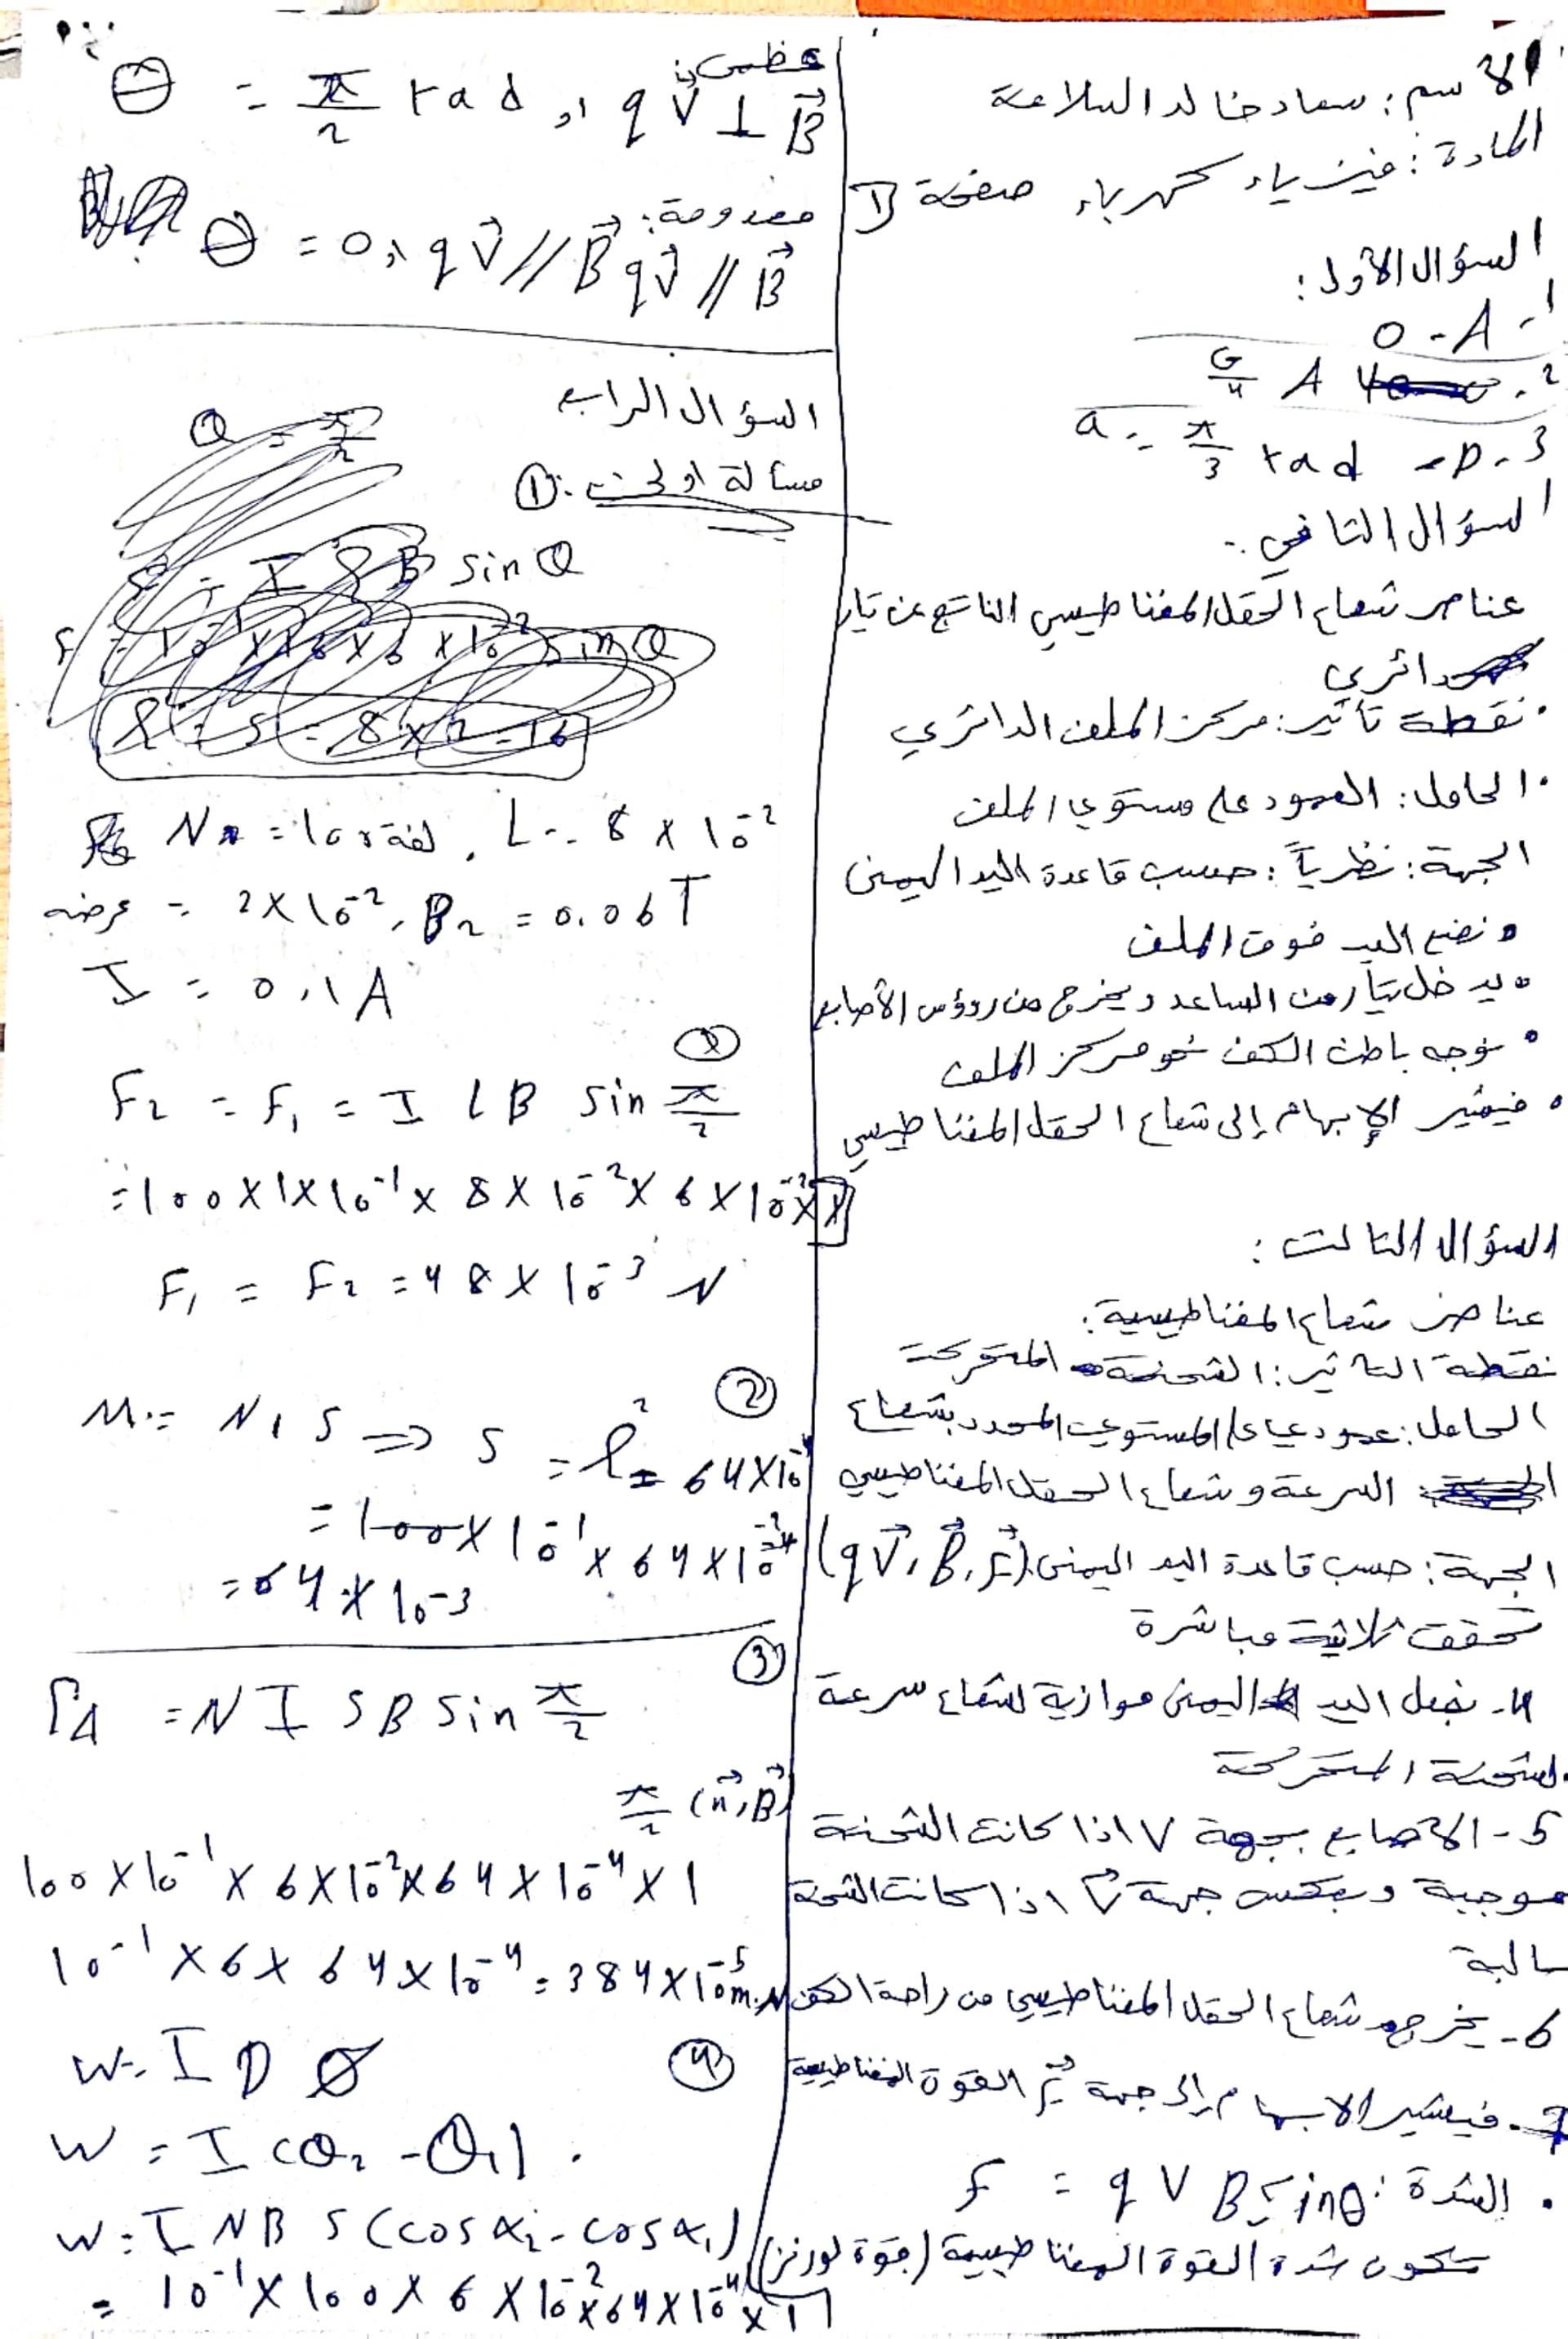 الاسم: سعاد خالد السلامة
المادة: فيزياء كهرباء صفحة 1
السؤال الأول:
1- A - 0
2- A G/4
3- D - a = π/3 rad
السؤال الثاني:-
عناصر شعاع الحقل المغناطيسي الناتج عن تيار
دائري
• نقطة تأثير: مركز الملف الدائري
• الحامل: العمود على مستوي الملف
الجهة: نظرياً: حسب قاعدة اليد اليمنى
• نضع اليد فوق الملف
• يدخل تيار من الساعد ويخرج من رؤوس الأصابع
• نوجه باطن الكف نحو مركز الملف
• فيشير الإبهام إلى شعاع الحقل المغناطيسي
السؤال الثالث:
عناصر شعاع المغناطيسية:
نقطة التأثير: الشحنة المتحركة
الحامل: عمودي على المستوي المحدد بشعاع
السرعة وشعاع الحقل المغناطيسي
الجهة: حسب قاعدة اليد اليمنى (qV⃗, B⃗, F⃗)
تحقق ثلاثية مباشرة
4- نجعل اليد اليمنى موازية لشعاع سرعة
الشحنة المتحركة
5- الأصابع بجهة V اذا كانت الشحنة
موجبة وبعكس جهة V⃗ اذا كانت الشحنة
سالبة
6- يخرج شعاع الحقل المغناطيسي من راحة الكف
7- فيشير الابهام إلى جهة القوة المغناطيسية
• الشدة: F = q V B sinθ
تكون شدة القوة المغناطيسية (قوة لورنز)
عظمى:
θ = π/2 rad او qV⃗ ⊥ B⃗
معدومة:
θ = 0, qV⃗ // B⃗ qV⃗ // B⃗
السؤال الرابع
مسألة اولى: ①
N = 100 لفة, L = 8 × 10⁻²
عرضه = 2 × 10⁻², B₂ = 0.06 T
I = 0,1 A
①
F₂ = F₁ = I L B sin π/2
= 100 × 1 × 10⁻¹ × 8 × 10⁻² × 6 × 10⁻² × 1
F₁ = F₂ = 48 × 10⁻³ N
②
M = N I S ⇒ S = l² = 64 × 10⁻⁴
= 100 × 10⁻¹ × 64 × 10⁻⁴
= 64 × 10⁻³
③
Γ_Δ = N I S B sin π/2
π/2 (n⃗, B⃗)
100 × 10⁻¹ × 6 × 10⁻² × 64 × 10⁻⁴ × 1
10⁻¹ × 6 × 64 × 10⁻⁴ = 384 × 10⁻⁵ m.N
④
W = I D Ø
W = I (Ø₂ - Ø₁)
W = I N B S (cos α₂ - cos α₁)
= 10⁻¹ × 100 × 6 × 10⁻² × 64 × 10⁻⁴ × 1